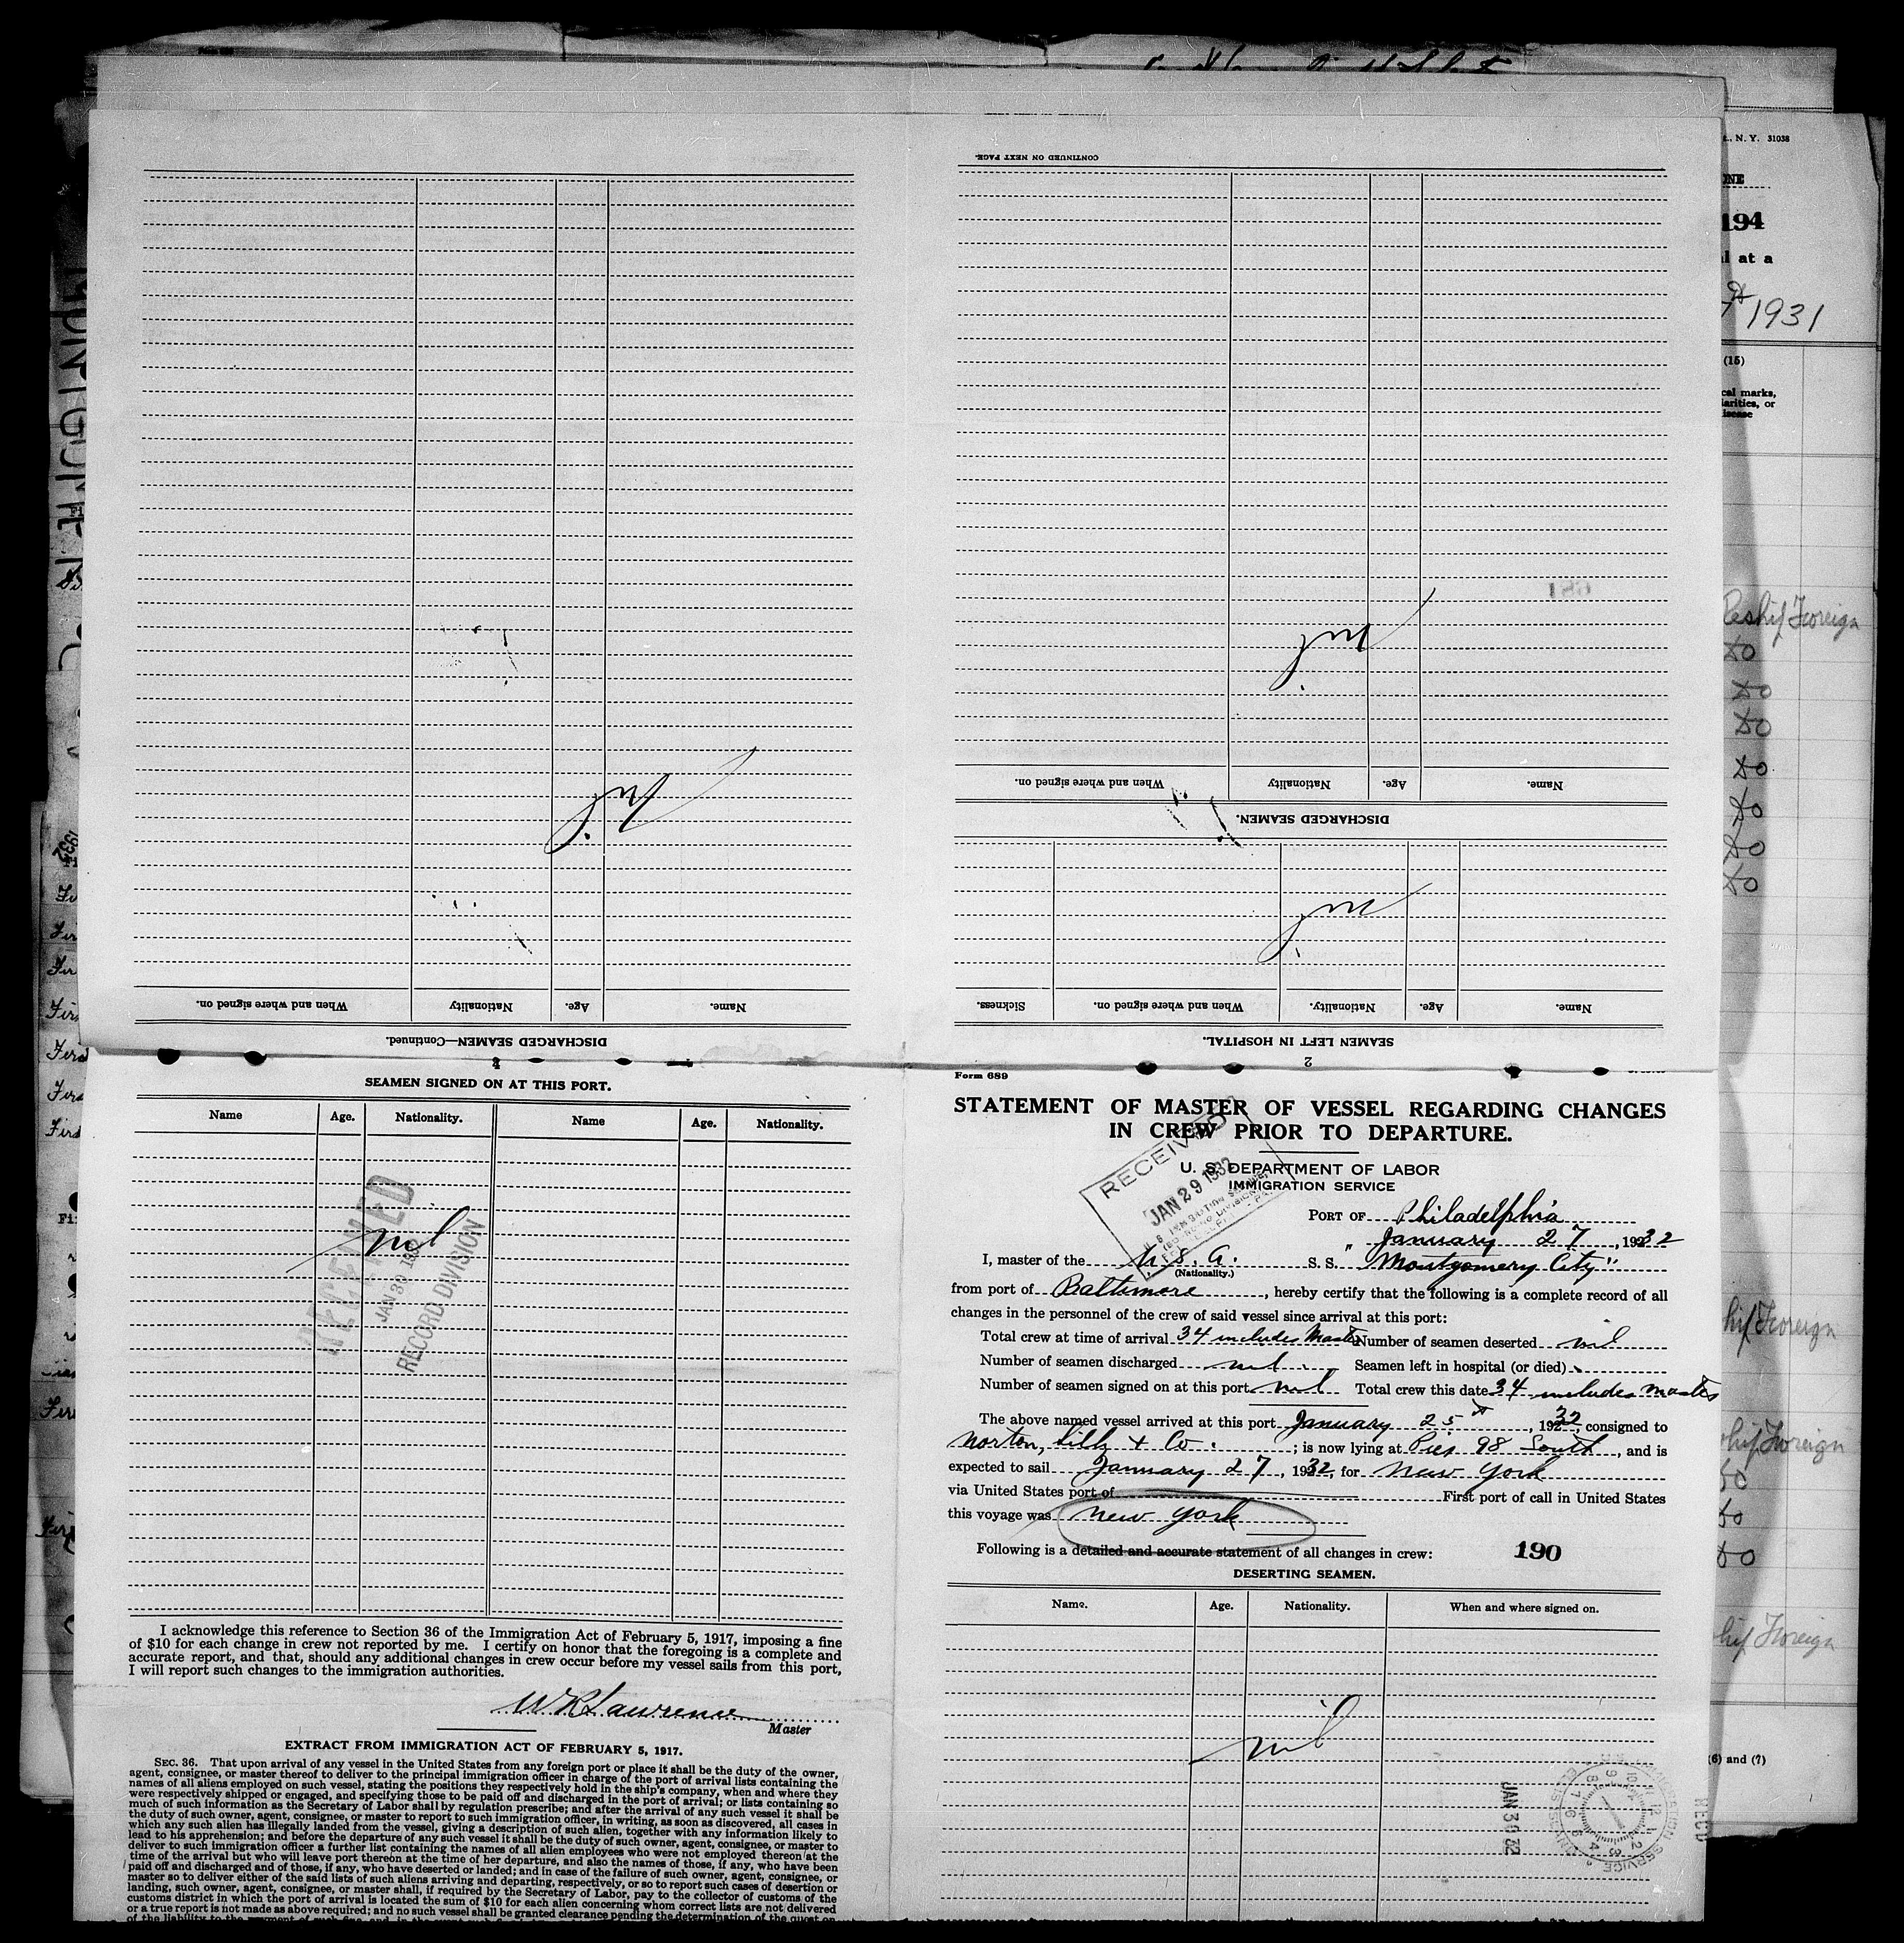 t., N. Y. 31038
ONE
194
l at a
1931
(15)
cal marks,
larities, or
disease
Reship Foreign
do
do
do
do
do
do
do
hip Foreign
ship Foreign
do
do
do
hip Foreign
(6) and (7)
CONTINUED ON NEXT PAGE.
nil
Name.
Age.
Nationality
When and where signed on.
DISCHARGED SEAMEN.
nil
Name.
Age.
Nationality.
When and where signed on.
Sickness.
SEAMEN LEFT IN HOSPITAL.
2
nil
Name.
Age.
Nationality
When and where signed on.
DISCHARGED SEAMEN—Continued.
SEAMEN SIGNED ON AT THIS PORT.
Name Age. Nationality. Name Age. Nationality.
nil
RECEIVED
JAN 30 1932
RECORD DIVISION
I acknowledge this reference to Section 36 of the Immigration Act of February 5, 1917, imposing a fine
of $10 for each change in crew not reported by me. I certify on honor that the foregoing is a complete and
accurate report, and that, should any additional changes in crew occur before my vessel sails from this port,
I will report such changes to the immigration authorities.
W R Lawrence
Master
EXTRACT FROM IMMIGRATION ACT OF FEBRUARY 5, 1917.
SEC. 36. That upon arrival of any vessel in the United States from any foreign port or place it shall be the duty of the owner,
agent, consignee, or master thereof to deliver to the principal immigration officer in charge of the port of arrival lists containing the
names of all aliens employed on such vessel, stating the positions they respectively hold in the ship's company, when and where they
were respectively shipped or engaged, and specifying those to be paid off and discharged in the port of arrival; or lists containing so
much of such information as the Secretary of Labor shall by regulation prescribe; and after the arrival of any such vessel it shall be
the duty of such owner, agent, consignee, or master to report to such immigration officer, in writing, as soon as discovered, all cases in
which any such alien has illegally landed from the vessel, giving a description of such alien, together with any information likely to
lead to his apprehension; and before the departure of any such vessel it shall be the duty of such owner, agent, consignee, or master to
deliver to such immigration officer a further list containing the names of all alien employees who were not employed thereon at the
time of the arrival but who will leave port thereon at the time of her departure, and also the names of those, if any, who have been
paid off and discharged and of those, if any, who have deserted or landed; and in case of the failure of such owner, agent, consignee, or
master so to deliver either of the said lists of such aliens arriving and departing, respectively, or so to report such cases of desertion or
landing, such owner, agent, consignee, or master shall, if required by the Secretary of Labor, pay to the collector of customs of the
customs district in which the port of arrival is located the sum of $10 for each alien concerning whom correct lists are not delivered
or a true report is not made as above required; and no such vessel shall be granted clearance pending the determination of the quest on
of the liability to the payment of such fine, and, in the
Form 689
STATEMENT OF MASTER OF VESSEL REGARDING CHANGES
IN CREW PRIOR TO DEPARTURE.
U. S. DEPARTMENT OF LABOR
IMMIGRATION SERVICE
RECEIVED
JAN 29 1932
PORT OF Philadelphia
January 27, 1932
I, master of the U. S. A. S. S. "Montgomery City"
(Nationality.)
from port of Baltimore, hereby certify that the following is a complete record of all
changes in the personnel of the crew of said vessel since arrival at this port:
Total crew at time of arrival 34 includes Master Number of seamen deserted nil
Number of seamen discharged nil Seamen left in hospital (or died)
Number of seamen signed on at this port nil Total crew this date 34 includes master
The above named vessel arrived at this port January 25, 1932, consigned to
Norton, Lilly & Co.; is now lying at Pier 98 South, and is
expected to sail January 27, 1932, for New York
via United States port of First port of call in United States
this voyage was New York
Following is a detailed and accurate statement of all changes in crew: 190
DESERTING SEAMEN.
Name. Age. Nationality. When and where signed on.
nil
JAN 30 32
REC'D